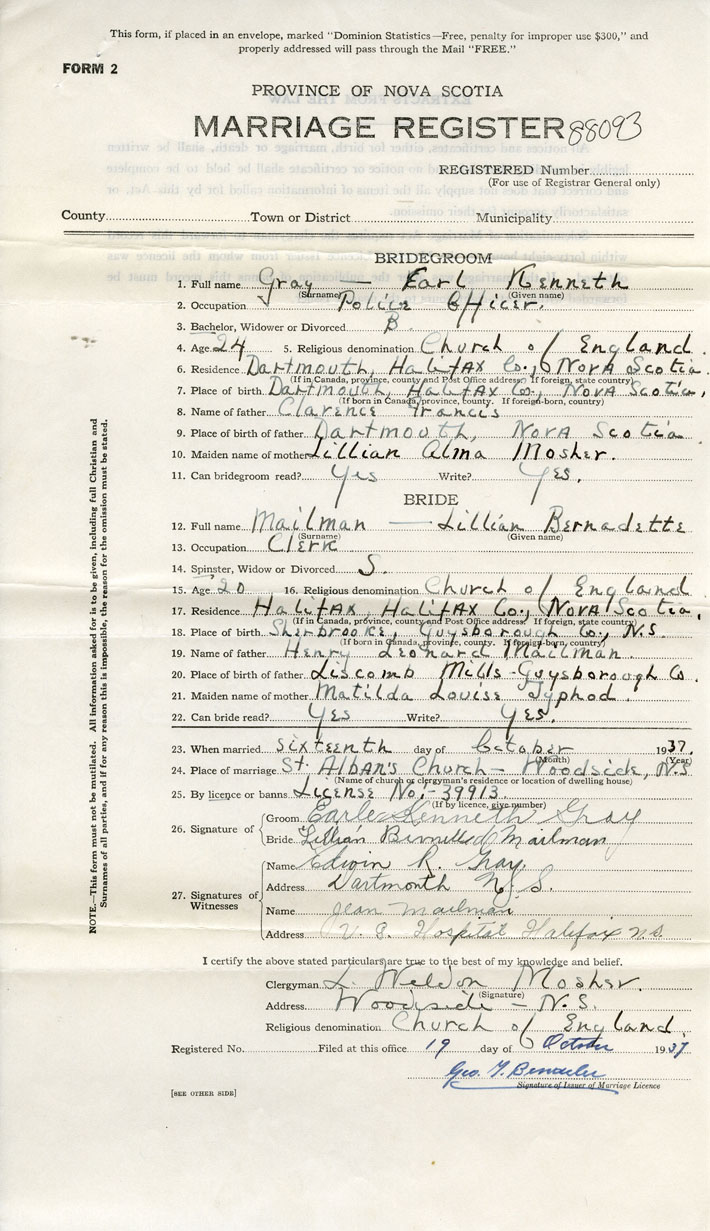 This form, if placed in an envelope, marked "Dominion Statistics—Free, penalty for improper use $300," and
properly addressed will pass through the Mail "FREE."
FORM 2
PROVINCE OF NOVA SCOTIA
MARRIAGE REGISTER 88093
REGISTERED Number
(For use of Registrar General only)
County Town or District Municipality
BRIDEGROOM
1. Full name Gray — Earl Kenneth
(Surname) (Given name)
2. Occupation Police Officer.
3. Bachelor, Widower or Divorced B
4. Age 24 5. Religious denomination Church of England
6. Residence Dartmouth, Halifax Co., Nova Scotia
(If in Canada, province, county and Post Office address. If foreign, state country)
7. Place of birth Dartmouth, Halifax Co., Nova Scotia,
(If born in Canada, province, county. If foreign-born, country)
8. Name of father Clarence Francis
9. Place of birth of father Dartmouth, Nova Scotia
10. Maiden name of mother Lillian Alma Mosher.
11. Can bridegroom read? Yes Write? Yes.
BRIDE
12. Full name Mailman — Lillian Bernadette
(Surname) (Given name)
13. Occupation Clerk
14. Spinster, Widow or Divorced S.
15. Age 20 16. Religious denomination Church of England
17. Residence Halifax, Halifax Co., Nova Scotia,
(If in Canada, province, county and Post Office address. If foreign, state country)
18. Place of birth Sherbrooke, Guysborough Co., N.S.
(If born in Canada, province, county. If foreign-born, country)
19. Name of father Henry Leonard Mailman
20. Place of birth of father Liscomb Mills - Guysborough Co
21. Maiden name of mother Matilda Louise Typhod.
22. Can bride read? Yes Write? Yes.
23. When married sixteenth day of October 1937.
(Month) (Year)
24. Place of marriage St. Alban's Church — Woodside, N.S
(Name of church or clergyman's residence or location of dwelling house)
25. By licence or banns License No:- 39913
(If by licence, give number)
26. Signature of
Groom Earle Kenneth Gray
Bride Lillian Mailman
27. Signatures of Witnesses
Name Edwin R. Gray
Address Dartmouth N.S.
Name Jean Mailman
Address V. G. Hospital Halifax N.S.
I certify the above stated particulars are true to the best of my knowledge and belief.
Clergyman L. Weldon Mosher.
(Signature)
Address Woodside — N.S.
Religious denomination Church of England
Registered No. Filed at this office 19 day of October 1937
Geo.
Signature of Issuer of Marriage Licence
[SEE OTHER SIDE]
NOTE.—This form must not be mutilated. All information asked for is to be given, including full Christian and
Surnames of all parties, and if for any reason this is impossible, the reason for the omission must be stated.